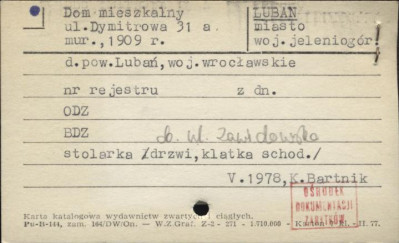 Dom mieszkalny
ul.Dymitrowa 31 a
mur.,1909 r.
LUBAŃ
miasto
woj.jeleniogór
d.pow.Lubań,woj.wrocławskie
nr rejestru z dn.
ODZ
BDZ ob. ul. Zawidowska
stolarka /drzwi,klatka schod./
V.1978,K.Bartnik
OŚRODEK
DOKUMENTACJI
ZABYTKÓW
Karta katalogowa wydawnictw zwartych i ciągłych.
Pu-B-144, zam. 104/DW/On. — W.Z.Graf. Z-2 - 271 - 1.710.000 - II. 77.